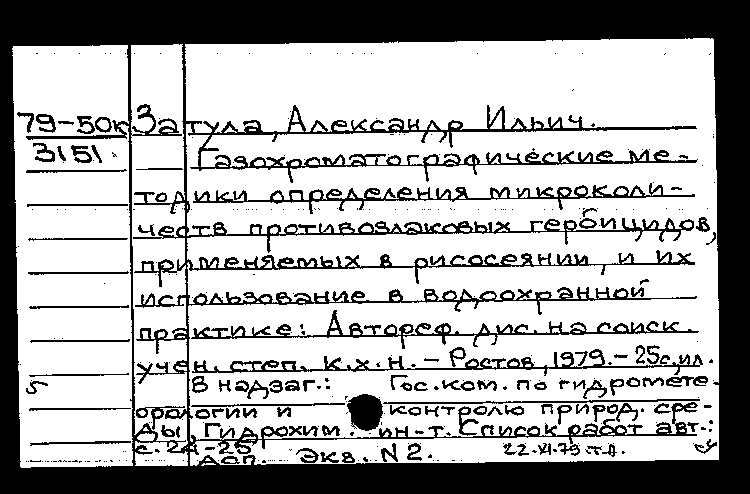 79-50к Затула, Александр Ильич.
3151. Газохроматографические ме-
тодики определения микроколи-
честв противозлаковых гербицидов,
применяемых в рисосеянии, и их
использование в водоохранной
практике: Автореф. дис. на соиск.
учен. степ. к.х.н. – Ростов, 1979. – 25с, ил.
5 В надзаг.: Гос. ком. по гидромете-
орологии и контролю природ. сре-
ды, Гидрохим. ин-т. Список работ авт.:
с. 24-25
Доп. Экз. N2. 22.XI.79